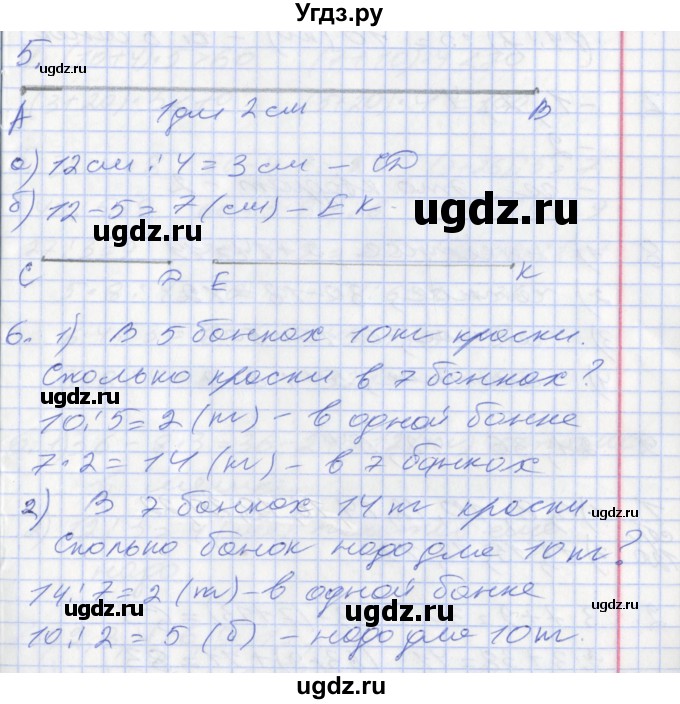 Угдз.ру
5.
ugdz.ru
А 1дм 2см В
а) 12см : 4 = 3см – CD
б) 12-5=7 (см) – ЕК.
ugdz.ru
ugdz.ru
С D Е К
6. 1) В 5 банках 10кг краски.
ugdz.ru
Сколько краски в 7 банках?
ugdz.ru
10:5=2 (кг) – в одной банке
7·2=14 (кг) – в 7 банках
2) В 7 банках 14кг краски
ugdz.ru
Сколько банок надо для 10кг?
14:7=2 (кг) – в одной банке
ugdz.ru
10:2=5 (б) – надо для 10кг.
ugdz.ru